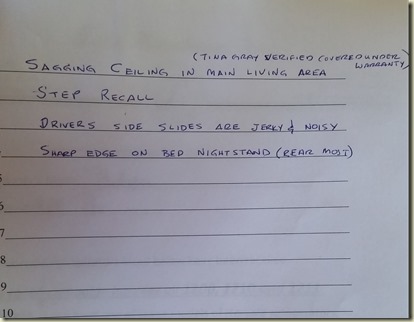 (TINA GRAY VERIFIED COVERED UNDER
WARRANTY)
SAGGING CEILING IN MAIN LIVING AREA
STEP RECALL
DRIVERS SIDE SLIDES ARE JERKY & NOISY
SHARP EDGE ON BED NIGHTSTAND (REAR MOST)
5
6
7
8
9
10